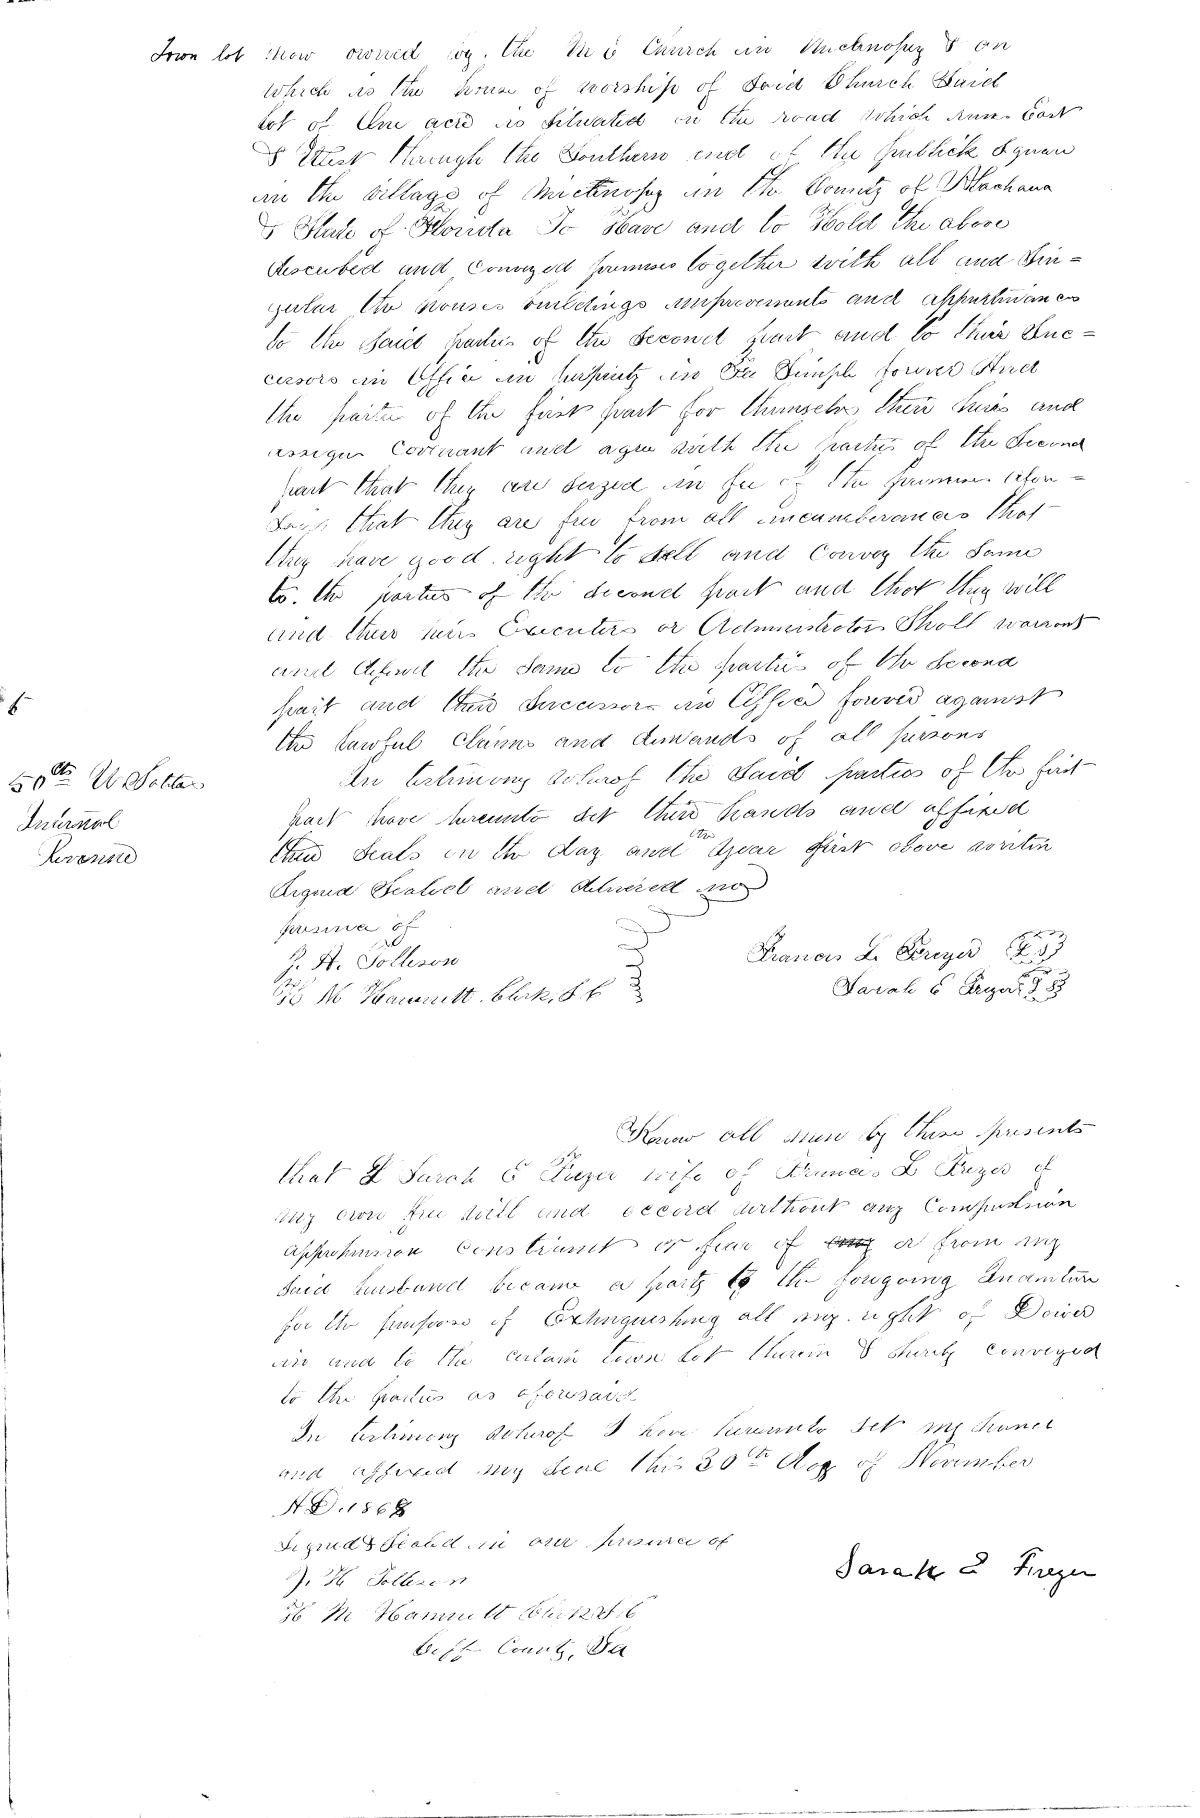 Town lot now owned by. the M E Church in Micanopy & on
which is the house of worship of Said Church Said
Lot of One acre is Situated on the road which runs East
& West through the Southern end of the publick Square
in the village of Micanopy in the County of Alachua
& State of Florida To Have and to Hold the above
described and conveyed premises together with all and Sin=
gular the houses buildings improvements and appurtinances
to the Said parties of the Second part and to their Suc=
cessors in Office in perpiuty in Fee Simple forever And
the parties of the first part for themselves their heirs and
assigns Covenant and agree with the parties of the Second
part that they are Seized in fee of the premises afore=
Said that they are free from all incumberances that
they have good right to Sell and Convey the Same
to. the parties of the Second part and that they will
and their heirs Executers or Administrators Shall warrant
and defend the Same to the parties of the Second
part and their Successors in Office forever against
the lawful claims and demands of all persons
50cts U States
Internal
Revenue
In testimony wherof the Said parties of the first
part have hereunto Set their hands and affixed
their Seals on the day and the year first above writtin
Signed Sealed and delivered in
presence of
J. H. Tolleson
H M Hammett. Clerk, S C
Francis L Frezer
Sarah E Frezer
Know all men by these presents
that I Sarah E Frezer wife of Francis L Frezer of
my own free will and accord without any Compulsion
apprehension constraint or fear of any or from my
Said husband became a party to the foregoing Indenture
for the purpose of Extinguishing all my right of Dower
in and to the certain town Lot therein & thereby conveyed
to the parties as aforesaid
In testimony wherof I have hereunto Set my hand
and affixed my Seal this 30th day of November
A D. 1868
Signed & Sealed in our presence of
J. H Tolleson
H M Hammett Clerk S C
County, Ga
Sarah E Frezer